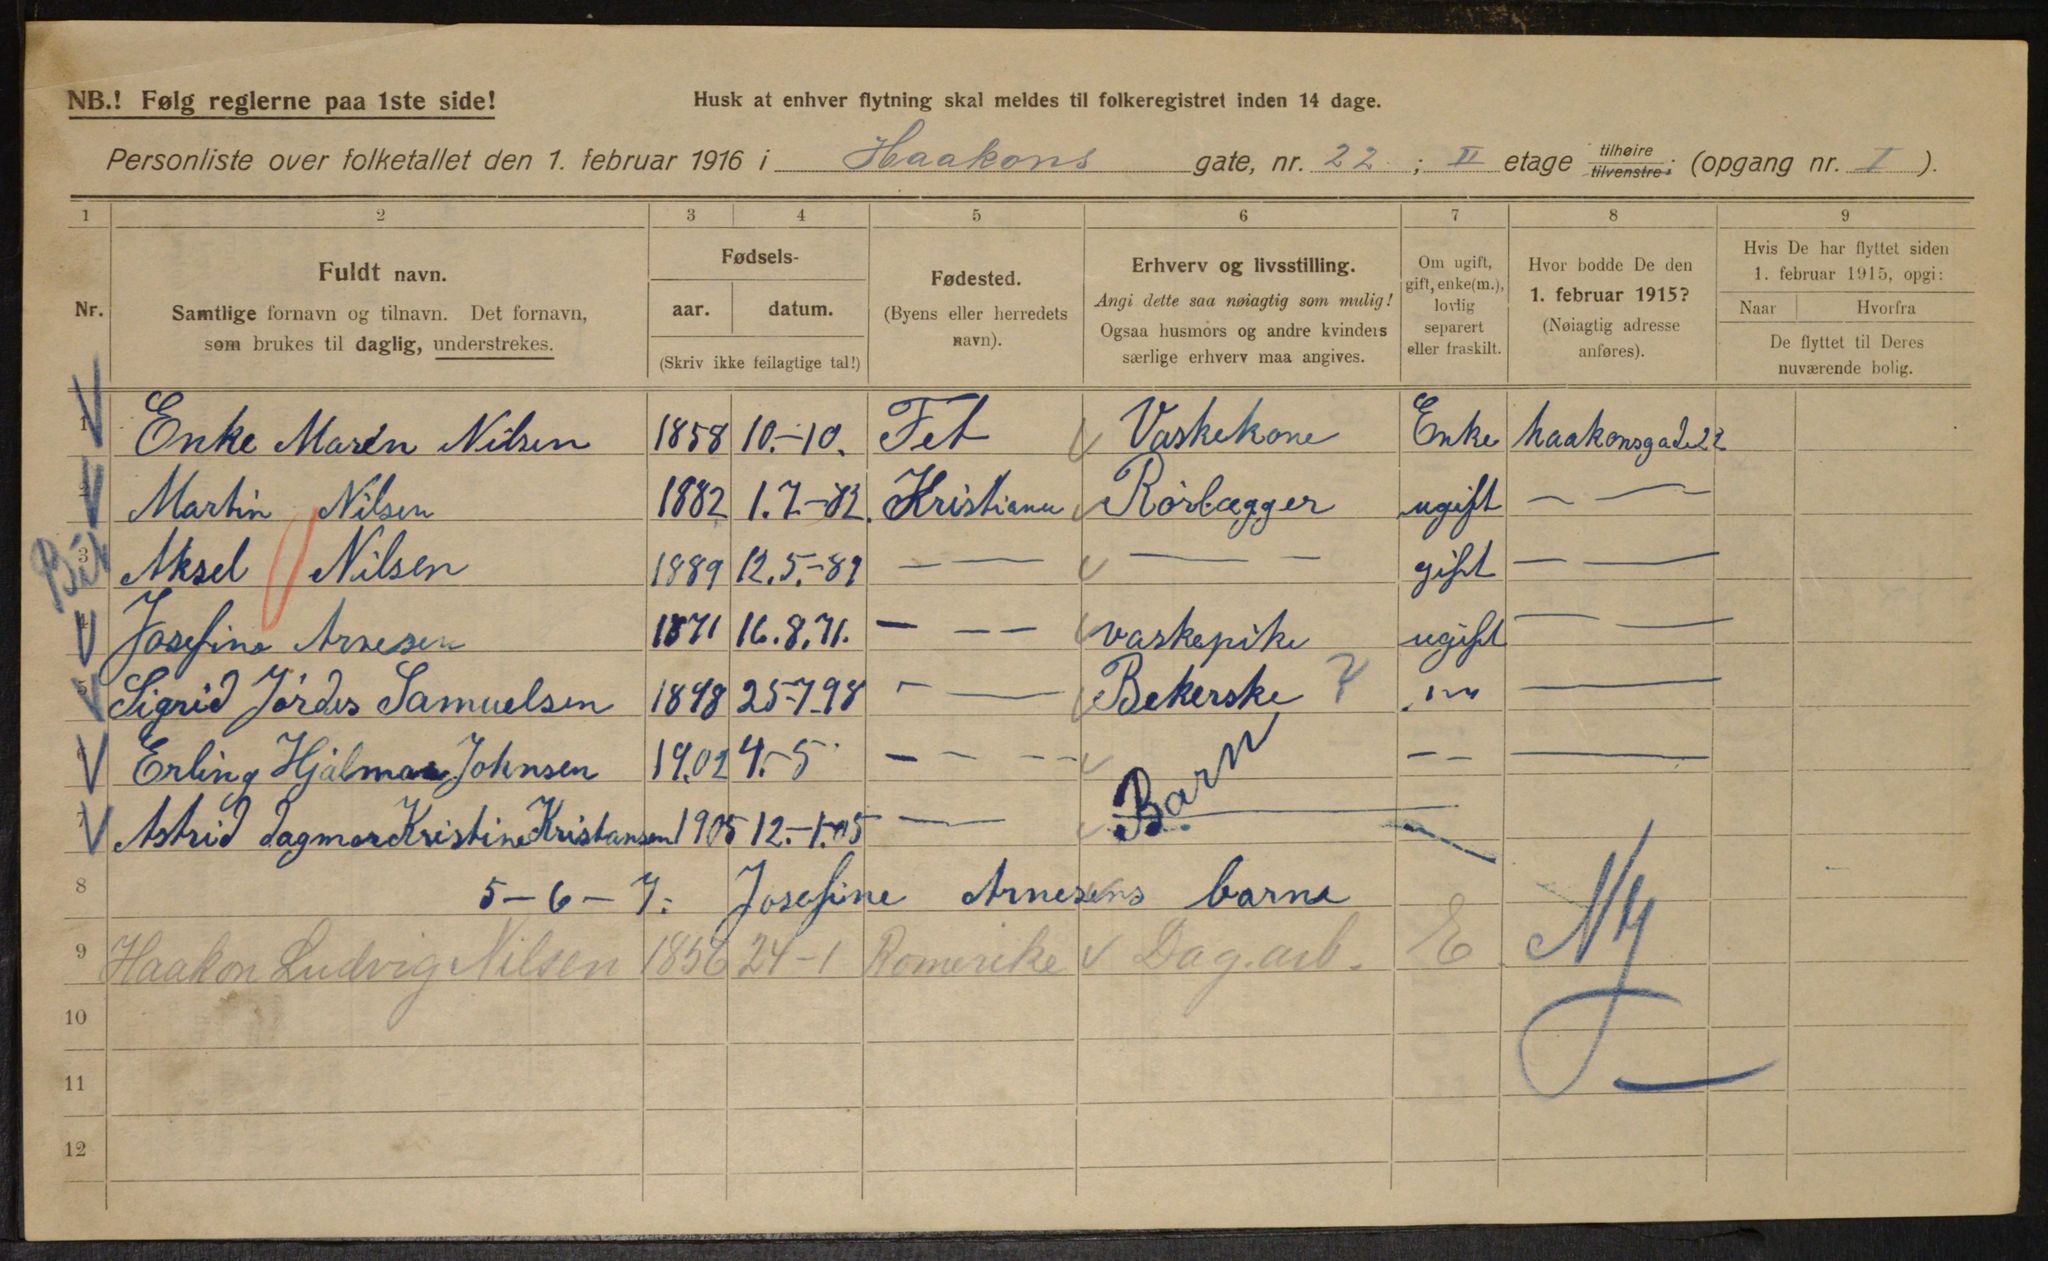 NB.! Følg reglerne paa 1ste side!
Husk at enhver flytning skal meldes til folkeregistret inden 14 dage.
Personliste over folketallet den 1. februar 1916 i Haakons gate, nr. 22 ; II etage tilhøire tilvenstre; (opgang nr. I ).
1 2 3 4 5 6 7 8 9
Nr.
Fuldt navn.
Samtlige fornavn og tilnavn. Det fornavn,
som brukes til daglig, understrekes.
Fødsels-
aar. datum.
(Skriv ikke feilagtige tal!)
Fødested.
(Byens eller herredets
navn).
Erhverv og livsstilling.
Angi dette saa nøiagtig som mulig!
Ogsaa husmors og andre kvinders
særlige erhverv maa angives.
Om ugift,
gift, enke(m.),
lovlig
separert
eller fraskilt.
Hvor bodde De den
1. februar 1915?
(Nøiagtig adresse
anføres).
Hvis De har flyttet siden
1. februar 1915, opgi:
Naar Hvorfra
De flyttet til Deres
nuværende bolig.
1 Enke Maren Nilsen 1858 10.-10. Fet Vaskekone Enke haakonsgade 22
2 Martin Nilsen 1882 1.7.-82. Kristiania Rörlægger ugift — —
3 Aksel Nilsen 1889 12.5.-89 — — — — gift — —
4 Josefine Arnesen 1871 16.8.71. — — — vaskepike ugift — —
5 Sigrid Jórdis Samuelsen 1898 25-7-98 — — Bekerske ? —"— —
6 Erling Hjalmar Johnsen 1902 4.-5 — — — — — —
Barn
7 Astrid dagmar Kristine Kristansen 1905 12.-1.05 — — —
8 5-6-7. Josefine Arnesens barna
9 Haakon Ludvig Nilsen 1856 24-1 Romerike Dag.arb. E. Ny
10
11
12